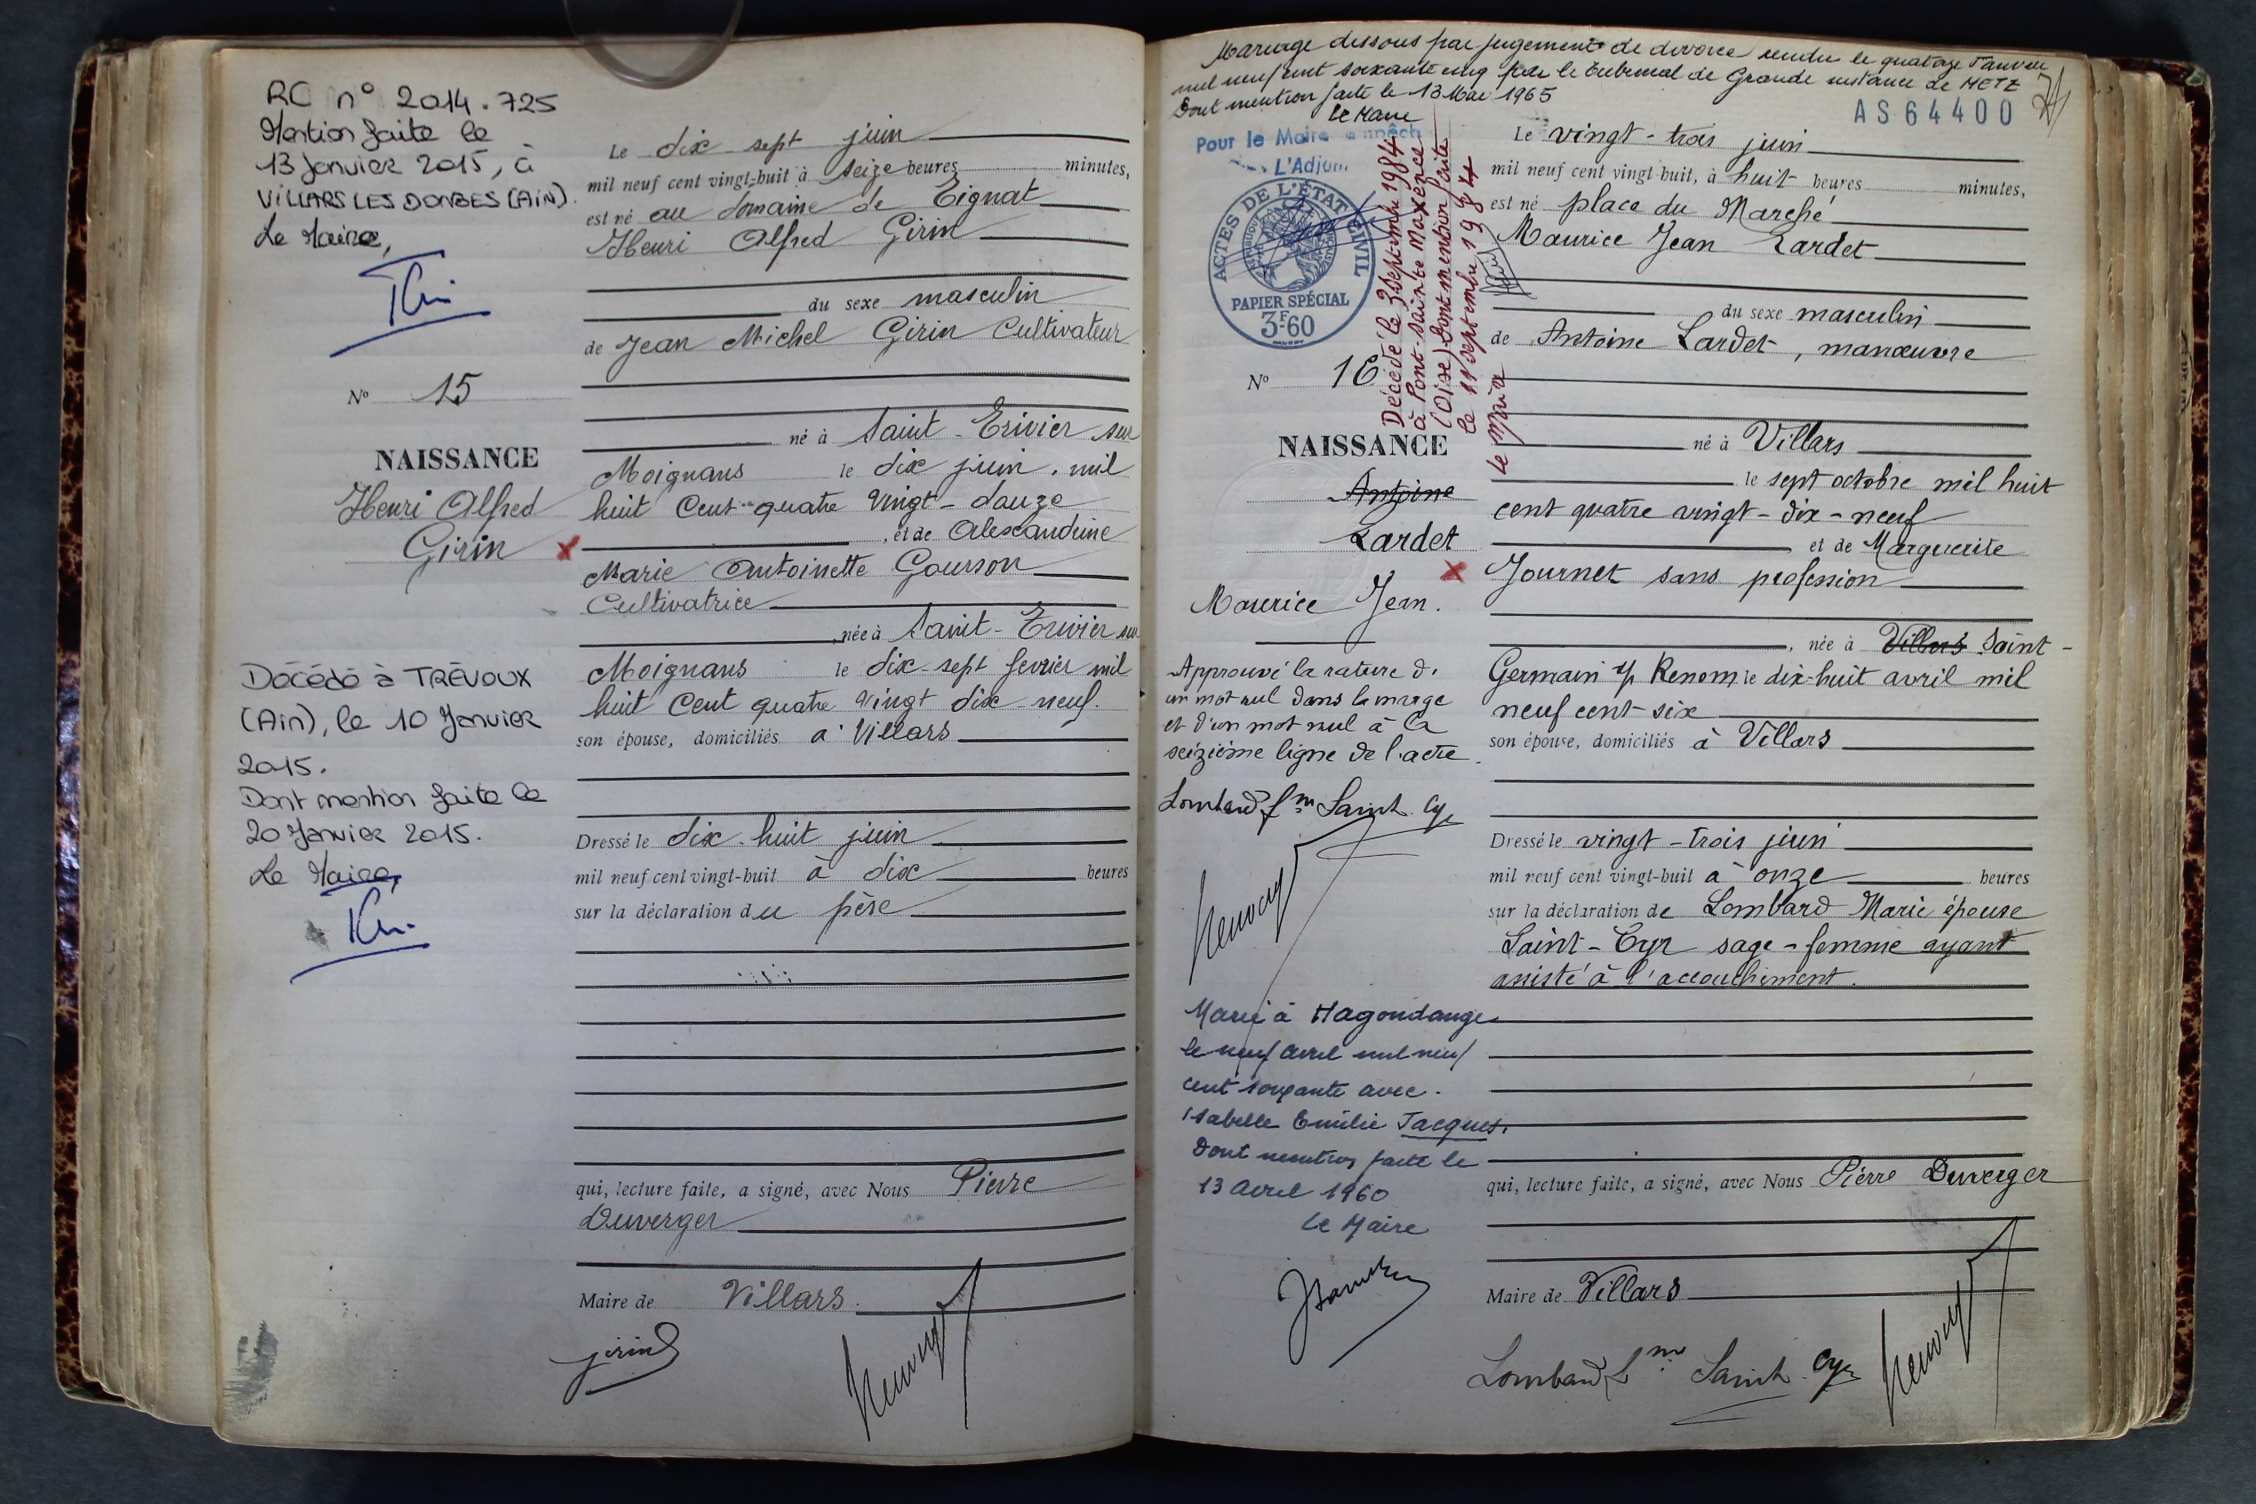 RC n° 2014.725
Mention faite le
13 Janvier 2015, à
VILLARS LES DOMBES (AIN).
Le Maire,
Le dix sept juin
mil neuf cent vingt-huit à seize heures minutes,
est né au domaine de Tignat
Henri Alfred Girin
du sexe masculin
de Jean Michel Girin Cultivateur
N° 15
né à Saint-Trivier sur
NAISSANCE
Moignans le dix juin, mil
Henri Alfred
huit Cent quatre Vingt-douze
Girin
, et de Alexandrine
Marie Antoinette Gourson
Cultivatrice
, née à Saint-Trivier sur
Décédé à TRÉVOUX
Moignans le dix-sept fevrier mil
(Ain), le 10 Janvier
huit Cent quatre Vingt dix neuf.
2015.
son épouse, domiciliés à Villars
Dont mention faite le
20 Janvier 2015.
Le Maire,
Dressé le dix-huit juin
mil neuf cent vingt-huit à dix heures
sur la déclaration du père
qui, lecture faite, a signé, avec Nous Pierre
Duverger
Maire de Villars.
girin
Mariage dissous par jugement de divorce rendu le quatorze Janvier
mil neuf cent soixante cinq par le Tribunal de Grande instance de METZ
Dont mention faite le 13 Mai 1965
Le Maire
Pour le Maire empêché
L'Adjoint
AS 64400
24
ACTES DE L'ÉTAT CIVIL
PAPIER SPÉCIAL
3F60
Décédé le 3 Septembre 1984
à Pont-Sainte Maxence
(Oise) Dont mention faite
le 11 Septembre 1984
Le Maire
Le vingt-trois juin
mil neuf cent vingt-huit, à huit heures minutes,
est né place du Marché
Maurice Jean Lardet
du sexe masculin
de Antoine Lardet, manœuvre
N° 16
né à Villars
NAISSANCE
le sept octobre mil huit
Antoine
cent quatre vingt-dix-neuf
Lardet
et de Marguerite
Journet sans profession
Maurice Jean.
, née à Villars Saint-
Approuvé la rature d'
un mot nul dans la marge
et d'un mot nul à la
seizième ligne de l'acte.
Germain s/ Renom le dix-huit avril mil
neuf cent-six
son épouse, domiciliés à Villars
Lombard fme Saint-Cyr
Dressé le vingt-trois juin
mil neuf cent vingt-huit à onze heures
sur la déclaration de Lombard Marie épouse
Saint-Cyr sage-femme ayant
assisté à l'accouchement.
Marié à Hagondange
le neuf avril mil neuf
cent soixante avec.
Isabelle Emilie Jacques.
Dont mention faite le
13 Avril 1960
Le Maire
qui, lecture faite, a signé, avec Nous Pierre Duverger
Maire de Villars
Lombard fme Saint-Cyr